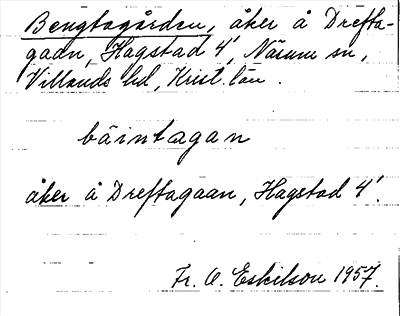 Bengtagården, åker å Drefta-
gaan, Hagstad 4', Näsum sn,
Villands hd, Krist. län.
bäintagan
åker å Dreftagaan, Hagstad 4'.
Fr. O. Eskilson 1957.